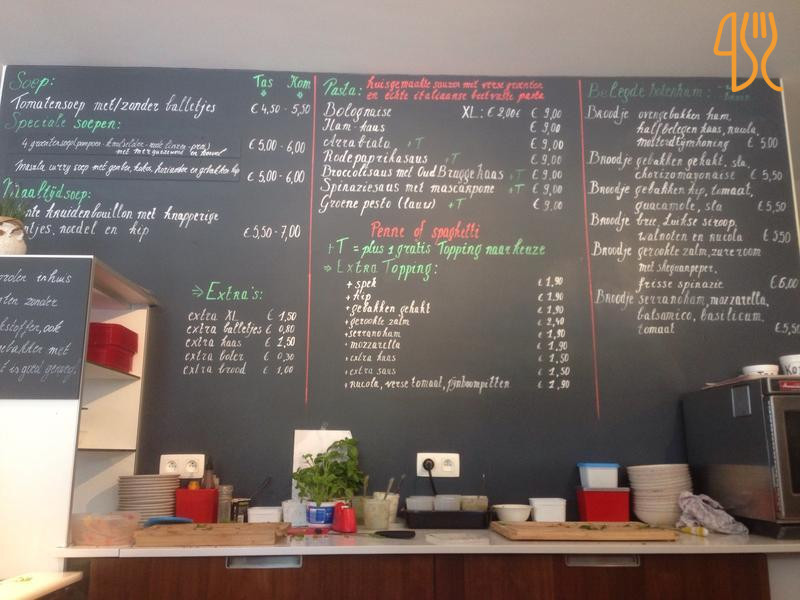 Soep: Tas Kom
Tomatensoep met/zonder balletjes € 4,50 - 5,50
Speciale soepen:
€ 5,00 - 6,00
Masala curry soep met gember, kokos, koriander en gebakken kip € 5,00 - 6,00
Maaltijdsoep:
kruidenbouillon met knapperige
noedel en kip € 5,50 - 7,00
⇒ Extra's:
extra XL € 1,50
extra balletjes € 0,80
extra kaas € 1,50
extra boter € 0,30
extra brood € 1,00
Pasta: huisgemaakte sauzen met verse groenten
en echte italiaanse beetvaste pasta
Bolognaise XL: € 2,00 € 9,00
Ham-kaas € 9,00
Arrabiata +T € 9,00
Rodepaprikasaus +T € 9,00
Broccolisaus met Oud Brugge kaas +T € 9,00
Spinaziesaus met mascarpone +T € 9,00
Groene pesto (lauw) +T € 9,00
Penne of spaghetti
+T = plus 1 gratis Topping naar keuze
⇒ Extra Topping:
+ spek € 1,90
+ kip € 1,90
+ gebakken gehakt € 1,90
+ gerookte zalm € 2,40
+ serranoham € 1,90
+ mozzarella € 1,90
+ extra kaas € 1,50
+ extra saus € 1,50
+ rucola, verse tomaat, pijnboompitten € 1,90
Belegde boterham:
Broodje ovengebakken ham,
half belegen kaas, rucola,
mosterdtijmhoning € 5,00
Broodje gebakken gehakt, sla,
chorizomayonaise € 5,50
Broodje gebakken kip, tomaat,
guacamole, sla € 5,50
Broodje brie, Luikse siroop,
walnoten en rucola € 5,50
Broodje gerookte zalm, zure room
met sheguanpeper,
frisse spinazie € 6,00
Broodje serranoham, mozzarella,
balsamico, basilicum,
tomaat € 5,50
in huis
zonder
stoffen, ook
gebakken met
t is goed genoeg.